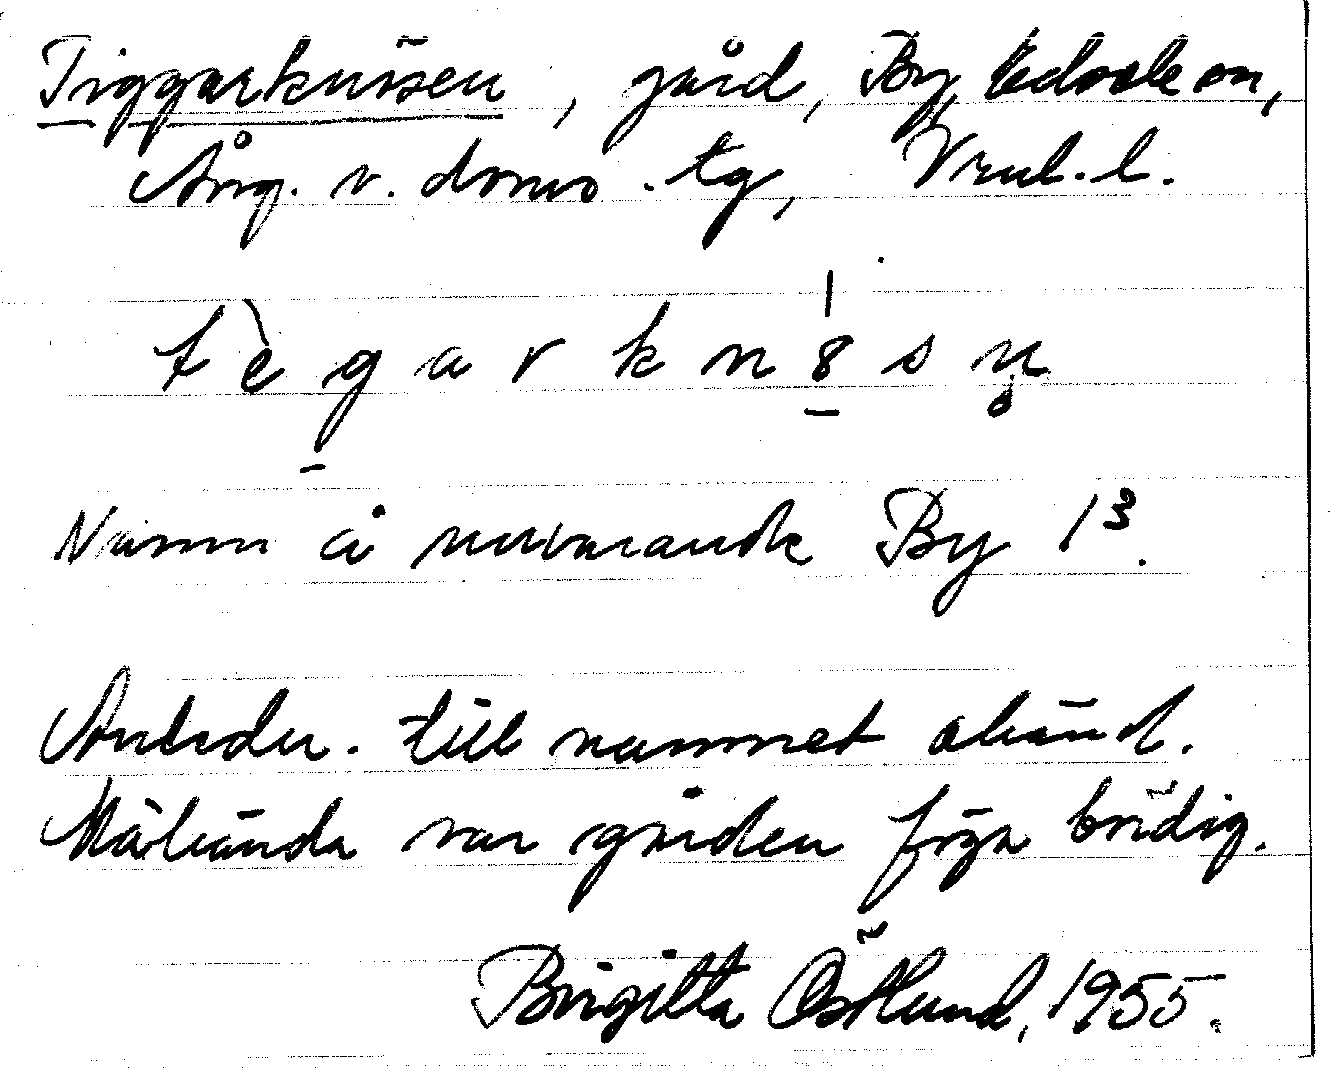 Tiggarknösen, gård, By, Edsele sn,
Ång. v. doms.-tg, Vrnl. l.
t è g a r k n 8 s n̥
Namn å nuvarande By 1³.
Anledn. till namnet okänd.
Måhända var gården föga bördig.
Birgitta Östlund, 1955.